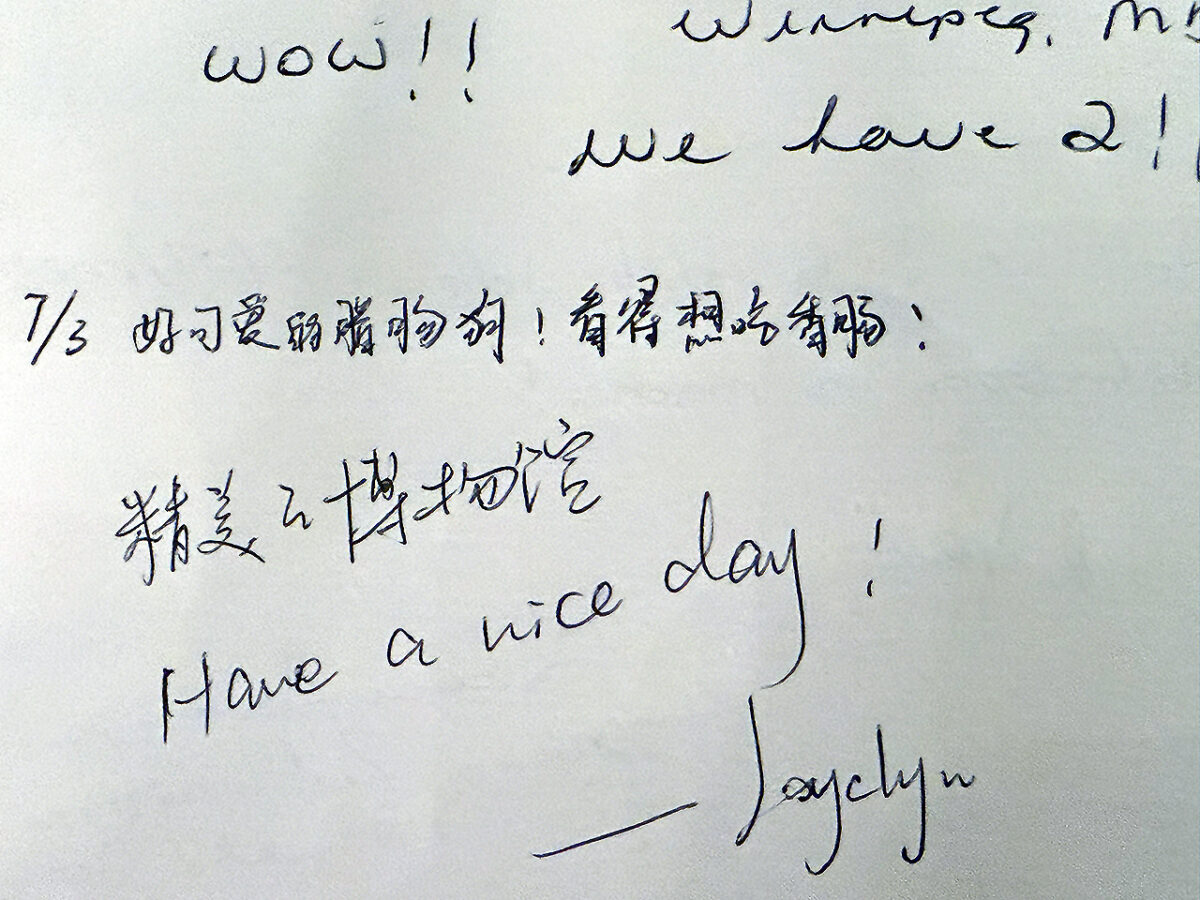 wow!!
Winnipeg, MB
we have 2!!
7/3 好可愛的臘腸狗！看得想吃香腸！
精美之博物馆
Have a nice day!
— Jayclyn